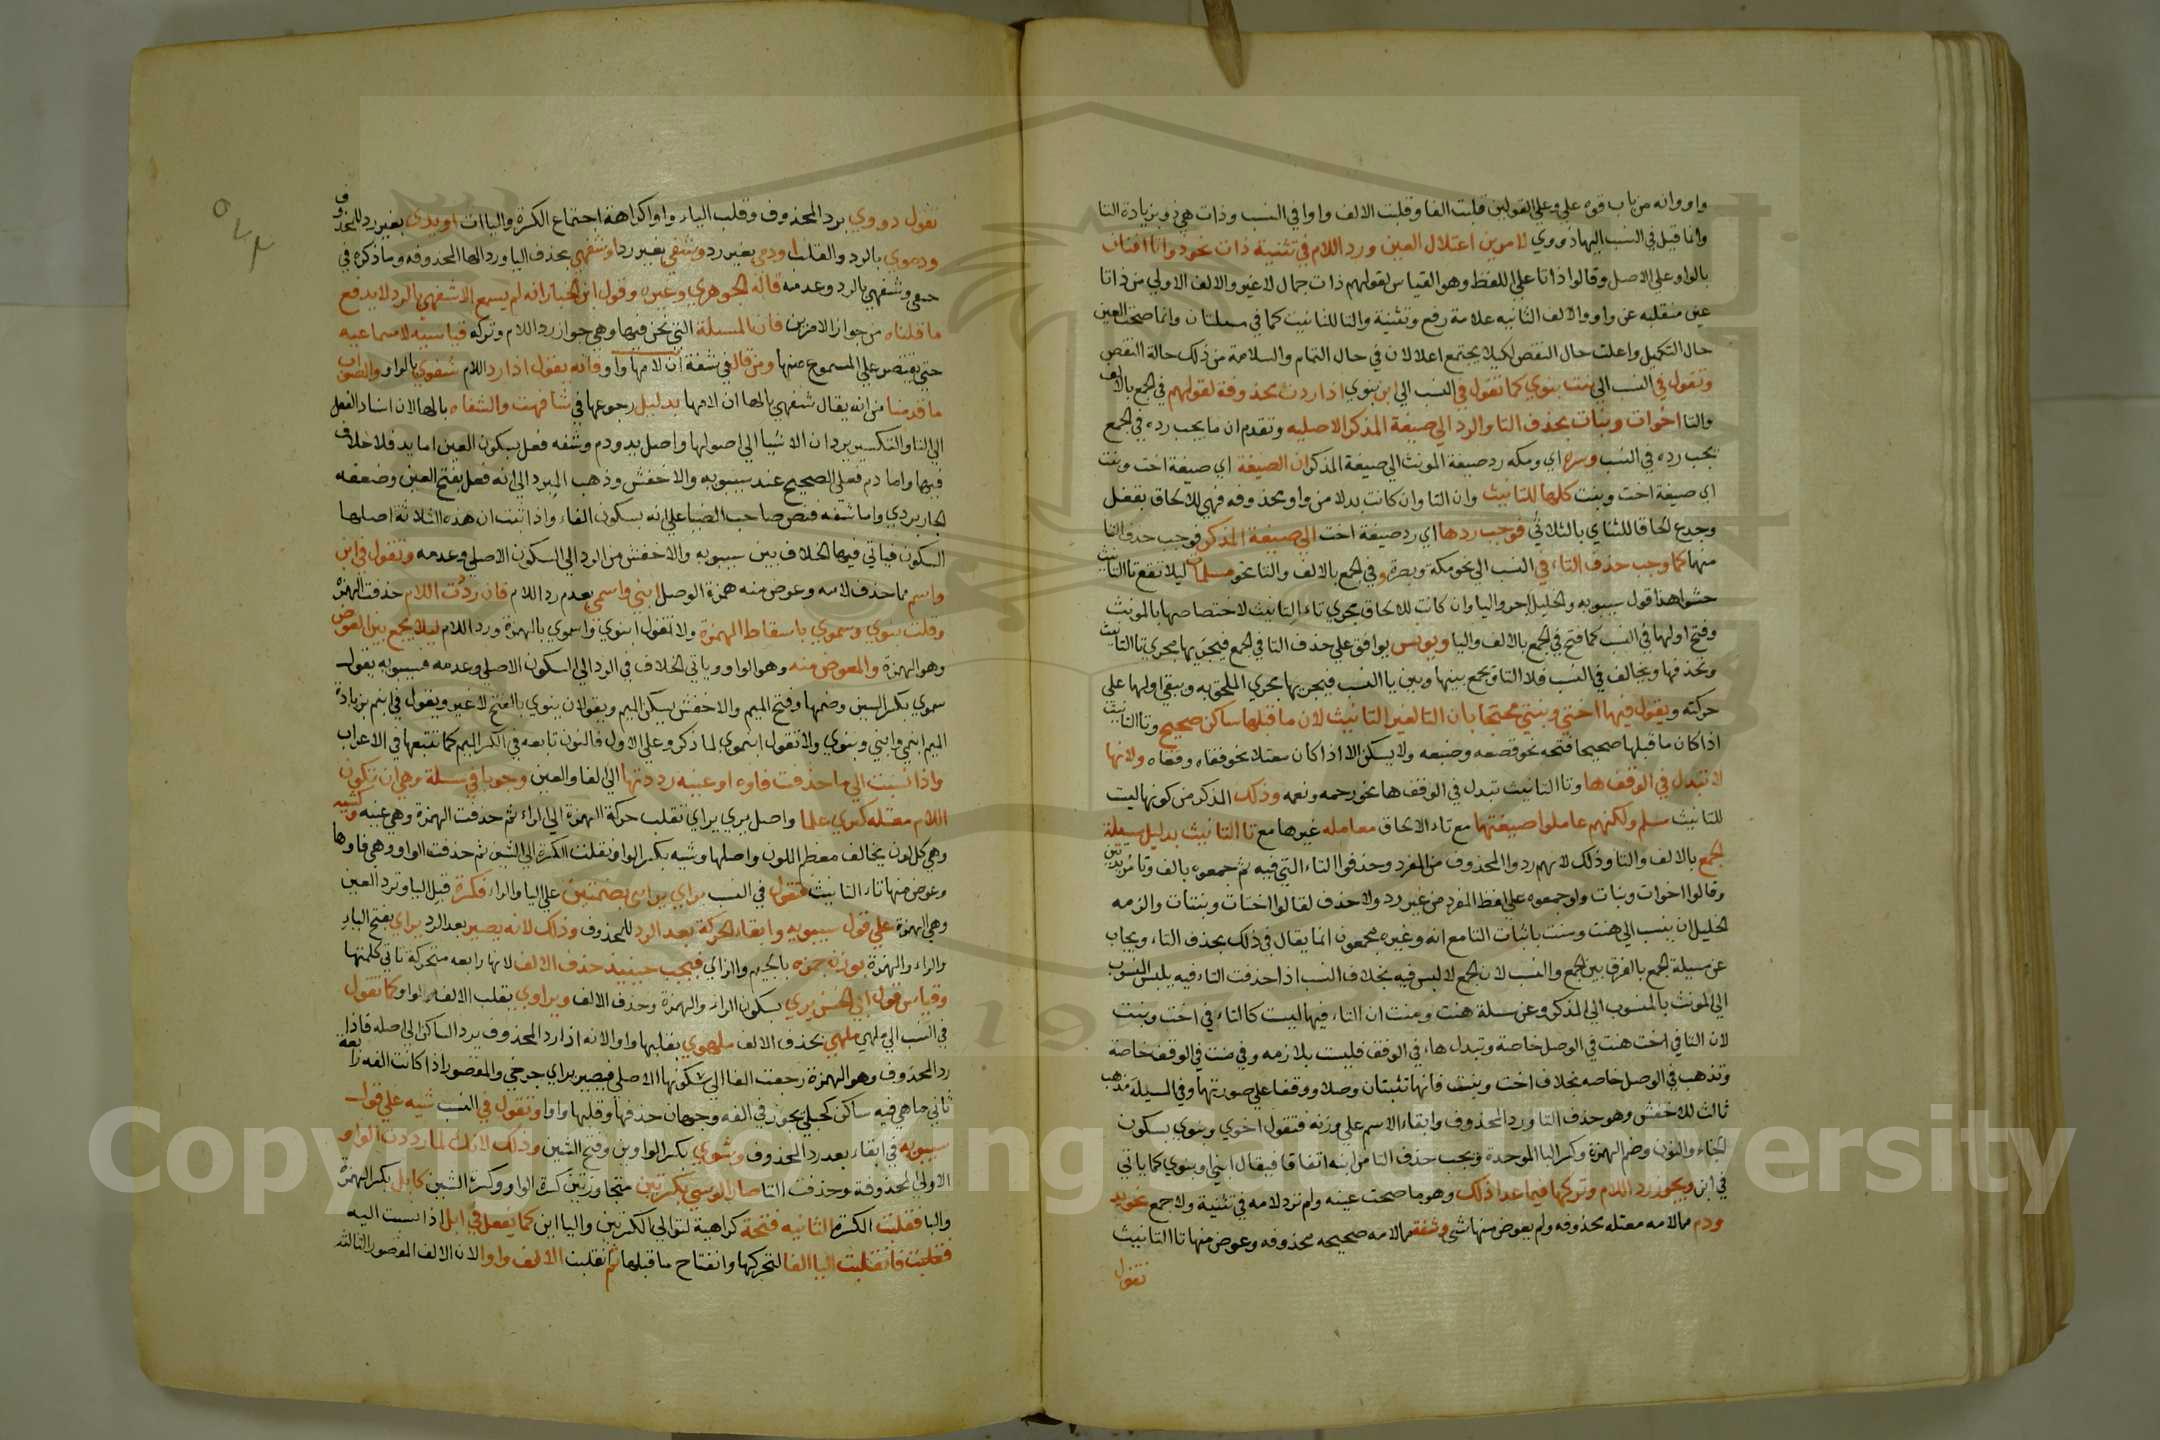 واو وانه من باب قوه علي وعلي القولين قلبت الفا وقلبت الالف واوا في النسب وذات هي ذو بزيادة التا
وانما قيل في النسب اليها ذووي لا مرين اعتلال العين ورد اللام في تثنية ذات نحو ذواتا افنان
بالواو علي الاصل وقالوا ذاتا علي اللفظ وهو القياس لقولهم ذات جمال لا غير والالف الاولي من ذاتا
عين منقلبه عن واو والالف الثانيه علامة رفع وتثنية والتا للتانيث كما في مسلتان وانما صحت العين
حال التكميل واعلت حال النقص لكيلا يجتمع اعلالان في حال التمام والسلامة من ذلك حالة النقص
وتقول في النسب الي بنت بنوي كما تقول في النسب الي ابن بنوي اذا رددت محذوفة لقولهم في الجمع بالالف
والتا اخوات وبنات بحذف التا والرد الي صيغة المذكر الاصليه وتقدم ان ما يجب رده في الجمع
يجب رده في النسب وسره اي ومكه رد صيغة المونث الي صيغة المذكر ان الصيغة اي صيغة اخت وبنت
اي صيغة اخت وبنت كلها للتانيث وان التا وان كانت بدلا من واو محذوفه فهي للالحاق بقفل
وجدع الحاقا للثناي بالثلاثي فوجب ردها اي رد صيغة اخت الي صيغة المذكر فوجب حذف التا
منها كما وجب حذف التاء في النسب الي نحو مكة وبصرة وفي الجمع بالالف والتا نحو مسلمات ليلا تقع تا التانيث
حشوا هذا قول سيبويه والخليل اجرو اليا وان كانت للالحاق مجري تاء التانيث لاختصاصها بالمونث
وفتح اولها في النسب كما فتح في الجمع بالالف واليا ويونس يوافق علي حذف التا في الجمع فيجريها مجري تا التانيث
وتحذفها ويخالف في النسب فلا التا ويجمع بينها وبين يا النسب فيجريها مجري الملحق به ويبقي اولها علي
حركته ويقول فيها اختي وبنتي محتجا بان التا لغير التانيث لان ما قبلها ساكن صحيح وتا التانيث
اذا كان ما قبلها صحيحا فتحه نحو قصعه وضبعه ولا يسكن الا اذا كان معتلا نحو فقاه وقفاه ولانها
لا تبدل في الوقف ها وتا التانيث تبدل في الوقف ها نحو رحمه ونعمه وذلك المذكر من كونها ليت
للتانيث مسلم ولكنهم عاملوا صيغتها مع تاء الالحاق معامله غيرها مع تا التانيث بدليل مسيلة
الجمع بالالف والتا وذلك لانهم ردوا المحذوف من المفرد وحذفوا التاء التي فيه ثم جمعوه بالف وتا مزيدتين
وقالوا اخوات وبنات ولو جمعوه علي لفظ المفرد من غير رد ولا حذف لقالوا اختات وبنتات والزمه
الخليل ان ينسب الي هنت ومنت باثبات التا مع انه وغيره مجمعون انما يقال في ذلك بحذف التاء ويجاب
عن مسيلة الجمع بالفرق بين الجمع والنسب لان الجمع لا لبس فيه بخلاف النسب اذا حذفت التاء فيه يلبس المنسوب
الي المونث بالمنسوب الي المذكر وعن مسلة هنت ومنت ان التاء فيها ليت كالتاء في اخت وبنت
لان التا في اخت هنت في الوصل خاصة وتبدل هاء في الوقف فليست بلازمه وفي منت في الوقف خاصة
وتذهب في الوصل خاصه بخلاف اخت وبنت فانها تثبتان وصلا ووقفا علي صورتها وفي المسيلة مذهب
ثالث للاخفش وهو حذف التا ورد المحذوف وابقاء الاسم علي وزنه فتقول اخوي وبنوي بسكون
الخاء والنون وضم الهمزة وكسر البا الموحدة ويجب حذف التا من ابنه اتفاقا فيقال ابني وبنوي كما ياتي
في ابن ويجوز رد اللام وتركها فيما عدا ذلك وهو ما صحت عينه ولم ترد لامه في تثنية ولا جمع نحو يد
ودم مما لامه معتله محذوفه ولم يعوض منها شي وشفة مما لامه صحيحه محذوفه وعوض منها تا التانيث
تقول
تقول دووي برد المحذوف وقلب الياء واوا كراهة اجتماع الكسرة واليا ات او يدي بغير رد للمحذوف
ودموي بالرد والقلب او دمي بغير رد وشفي بغير رد او شفهي بحذف اليا ورد الها المحذوفه وما ذكره في
شفي وشفهي بالرد وعدمه قاله الجوهري وغيره وقول ابن الخباز انه لم يسمع الا شفهي بالرد لا يدفع
ما قلناه من جواز الامرين فان المسيلة التي نحن فيها وهي جواز رد اللام وتركه قياسيه لا سماعيه
حتي يقتصر علي المسموع منها ومن قال في شفة ان لامها واو فانه يقول اذا رد اللام شفوي بالواو والصواب
ما قدمنا من انه يقال شفهي بالها ان لامها بدليل رجوعها في شافهت والشفاه بالها لان اسناد الفعل
الي التا والتكسير يردان الاشيا الي اصولها واصل يد ودم وشفه فعل بسكون العين اما يد فلا خلاف
فيها واما دم فعلي الصحيح عند سيبويه والاخفش وذهب المبرد الي انه فعل بفتح العين وضعفه
الجاربردي واما شفه فنص صاحب الضيا علي انه بسكون الفاء واذا تبت ان هذه الثلاثة اصلها
السكون فياتي فيها الخلاف بين سيبويه والاخفش من الرد الي السكون الاصلي وعدمه وتقول في ابن
واسم مما حذف لامه وعوض منه همزة الوصل ابني واسمي بعدم رد اللام فان رددت اللام حذفت الهمزة
وقلت بنوي وسموي باسقاط الهمزة ولا تقول ابنوي واسموي بالهمزة ورد اللام ليلا يجمع بين العوض
وهو الهمزة والمعوض منه وهو الواو وياتي الخلاف في الرد الي السكون الاصلي وعدمه فسيبويه يقول
سموي بكسر السين وضمها وفتح الميم والاخفش يسكن الميم ويقولان بنوي بالفتح لا غير ويقول في ابنم بزيادة
الميم ابنمي وابني وبنوي ولا تقول ابنموي لما ذكر وعلي الاول فالنون تابعه في الكسر الميم كما تتبعها في الاعراب
واذا نسبت الي ما حذفت فاوه او عينه رددتها الي الفا والعين وجوبا في مسلة وهي ان تكون
اللام معتله كيري علما واصل يري يراي نقلت حركة الهمزة الي الراء ثم حذفت الهمزة وهي عينه وكشيه
وهي كل لون يخالف معظم اللون واصلها وشيه بكسر الواو نقلت الكسرة الي الشين ثم حذفت الواو وهي فاوها
وعوض منها تاء التانيث فتقول في النسب يراي يراي بفتحتين علي اليا والراء فكسرة قبل اليا وترد العين
وهي الهمزة علي قول سيبويه وابقاء الحركة بعد الرد للمحذوف وذلك لانه يصير بعد الرد يراي بفتح الياء
والراء والهمزة بوزن جمزه بالجيم والزاي فيجب حينيذ حذف الالف لانها رابعه متحركة ثاني كلمتها
وقياس قول ابي الحسن يري بسكون الراء والهمزة وحذف الالف ويراوي بقلب الالف واوا كما تقول
في النسب الي ملهي ملهي بحذف الالف ملهوي بقلبها واوا لانه اذا رد المحذوف يرد الساكن الي اصله فاذا
رد المحذوف وهو الهمزة رجعت الفا الي سكونها الاصلي فيصير يراي جرجي والمقصور اذا كانت الفه رابعه
ثاني ما هي فيه ساكن كحبلي يجوز في الفه وجهان حذفها وقلبها واوا وتقول في النسب شيه علي قول
سيبويه في ابقاء بعد رد المحذوف وشوي بكسر الواوين وفتح الشين وذلك لانك لما رددت الواو
الاولي المحذوفة وحذفت التا صار الوشي بكسرتين متجاورتين كسرة الواو وكسرة الشين كابل بكسر الهمزة
والبا فقلبت الكسرة الثانيه فتحة كراهية لتوالي الكسرتين واليا ابن كما يفعل في ابل اذا نسبت اليه
فقلبت فانقلبت اليا الفا لتحركها وانفتاح ما قبلها ثم نقلبت الالف واوا لان الالف المقصور الثالثه
Copyright © King Saud University